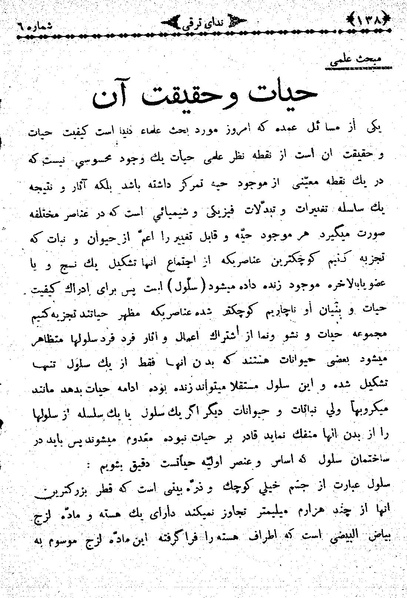 ﴿۱۳۸﴾ ندای ترقی شماره ۶
مبحث علمی
حیات و حقیقت آن
یکی از مسائل عمده که امروز مورد بحث علماء دنیا است کیفیت حیات
و حقیقت ان است از نقطه نظر علمی حیات یك وجود محسوسی نیست که
در یك نقطه معینی از موجود حیه تمرکز داشته باشد بلکه آثار و نتیجه
یك سلسله تغییرات و تبدلات فیزیکی و شیمیائی است که در عناصر مختلفه
صورت میگیرد هر موجود حیّه و قابل تغییر را اعم از حیوان و نبات که
تجزیه کنیم کوچکترین عناصریکه از اجتماع انها تشکیل یك نسج و یا
عضو یابالاخره موجود زنده داده میشود (سلّول) است پس برای ادراك کیفیت
حیات و بنیان او ناچاریم کوچکتر شده عناصریکه مظهر حیاتند تجزیه کنیم
مجموعه حیات و نشو ونما از اشتراك اعمال و آثار فرد فرد سلولها متظاهر
میشود بعضی حیوانات هستند که بدن انها فقط از یك سلول تنها
تشکیل شده و این سلول مستقلا میتواند زنده بوده ادامه حیات بدهد مانند
میکروبها ولی نباتات و حیوانات دیگر اگر یك سلول یا یك سلسله از سلولها
را از بدن انها منفك نماید قادر بر حیات نبوده معدوم میشوند پس باید در
ساختمان سلول که اساس و عنصر اولیّه حیاتست دقیق بشویم :
سلول عبارت از جسم خیلی کوچك و ذرّه بینی است که قطر بزرکترین
انها از چند هزارم میلیمتر تجاوز نمیکند دارای یك هسته و مادّه لزج
بیاض البیضی است که اطراف هسته را فرا گرفته این مادّه لزج موسوم به